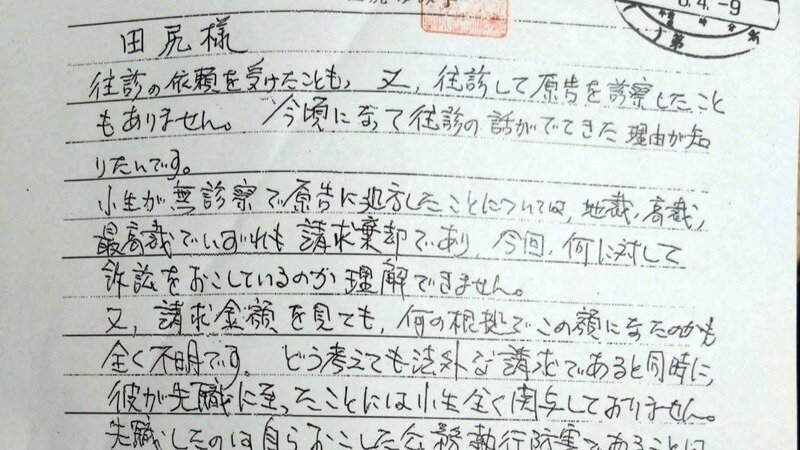 6.4.-9
田尻様
往診の依頼を受けたことも、又、往診して原告を診察したこと
もありません。今頃になって往診の話がでてきた理由が知
りたいです。
小生が無診察で原告に処方したことについては、地裁、高裁、
最高裁でいずれも請求棄却であり、今回、何に対して
訴訟をおこしているのか理解できません。
又、請求金額を見ても、何の根拠でこの額になったのかも
全く不明です。どう考えても法外な請求であると同時に、
彼が失職に至ったことには小生全く関与しておりません。
失職したのは自らおこした公務執行妨害であることは